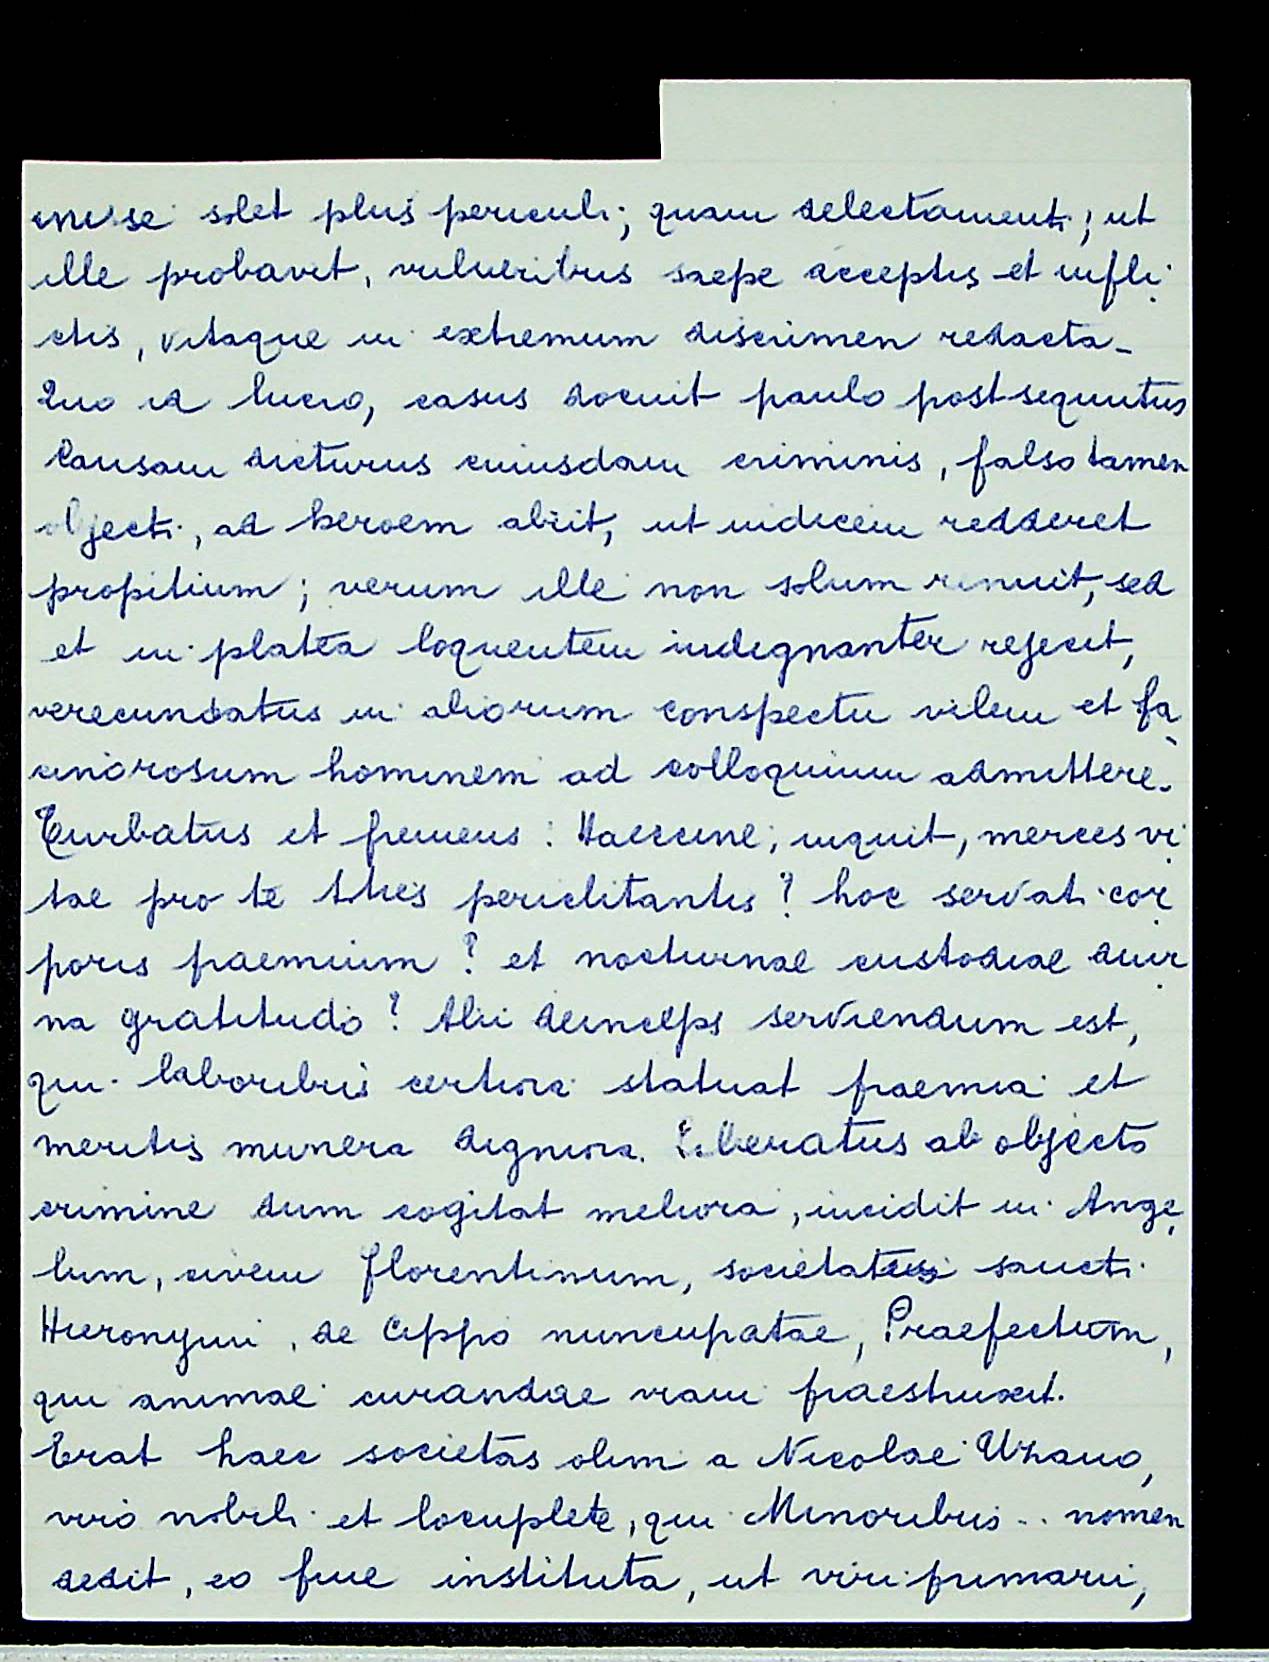 inesse solet plus periculi; quam delectamenti; ut
ille probavit, vulneribus saepe acceptis et infli
ctis, vitaque in extremum discrimen redacta.
Quo id lucro, casus docuit paulo post sequutus
Causam dicturus cuiusdam criminis, falso tamen
objecti, ad heroem abiit, ut iudicem redderet
propitium; verum ille non solum renuit, sed
et in platea loquentem indignanter rejecit,
verecundatus in aliorum conspectu vilem et fa
cinorosum hominem ad colloquium admittere.
Turbatus et fremens: Haeccine, inquit, merces vi
tae pro te toties periclitantis? hoc servati cor
poris praemium? et nocturnae custodiae diur
na gratitudo? Alii deinceps serviendum est,
qui laboribus certiora statuat praemia et
meritis munera digniora. Liberatus ab objecto
crimine dum cogitat meliora, incidit in Ange
lum, civem Florentinum, societatis sancti
Hieronymi, de Ceppo nuncupatae, Praefectum,
qui animae curandae viam praestruxit.
Erat haec societas olim a Nicolae Uzano,
viro nobili et locuplete, qui Minoribus .. nomen
dedit, eo fine instituta, ut viri primarii,